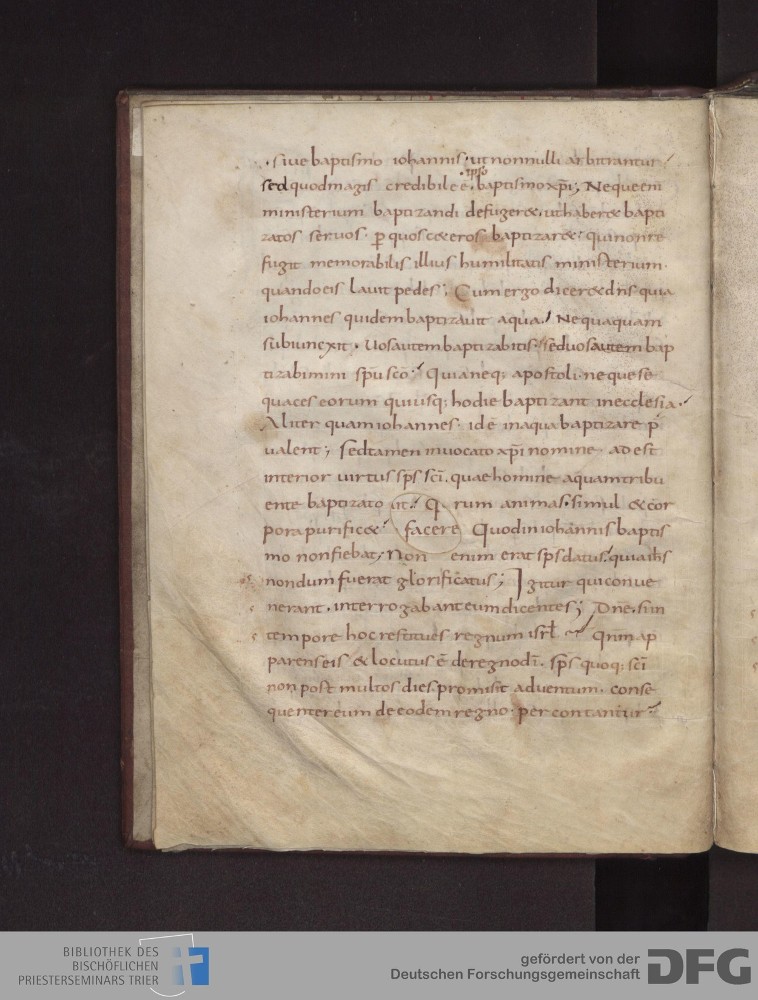 siue baptismo iohannis. ut nonnulli arbitrantur;
ipso
sed quod magis credibile ē. baptismo xp̄i; Neque eni
ministerium baptizandi defugeret. ut haberet bapti
zatos seruos. p̱ quos ceteros baptizaret. qui non re
fugit memorabilis illius humilitatis ministerium.
quando eis lauit pedes; Cum ergo diceret dn̄s quia
iohannes quidem baptizauit aqua. Nequaquam
subiuncxit. Uos autem baptizabitis. sed uos autem bap
tizabimini sp̄u sc̄o; Quia neq; apostoli. neque se
quaces eorum qui usq; hodie baptizant in ecclesia.
Aliter quam iohannes. id ē in aqua baptizare p̄
ualent; sed tamen inuocato xp̄i nomine. adest
interior uirtus sp̄s sc̄i. quae homine aquam tribu
ente baptizato
rum animas. simul & cor
pora purificet facere Quod in iohannis baptis
mo non fiebat; Non enim erat sp̄s datus. quia ih̄s
nondum fuerat glorificatus; Igitur qui conue
nerant. interrogabant eum dicentes; Dn̄e. si in
tempore hoc restitues regnum isrl̄ Qn̄m ap
parens eis & locutus ē de regno dī. sp̄s quoq; sc̄i
non post multos dies promisit aduentum. conse
quenter eum de eodem regno. percontantur
BIBLIOTHEK DES
BISCHÖFLICHEN
PRIESTERSEMINARS TRIER
gefördert von der
Deutschen Forschungsgemeinschaft
DFG